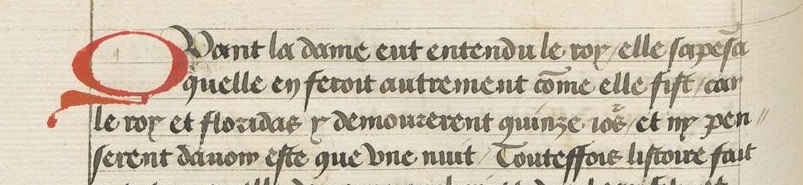 Quant la dame eut entendu le roy / elle sapẽsa
quelle en feroit autrement cõme elle fist / car
le roy et floridas y demourerent quinze iors̃ / et ny pen //
serent dauoir este que vne nuit / Touteffois listoire fait